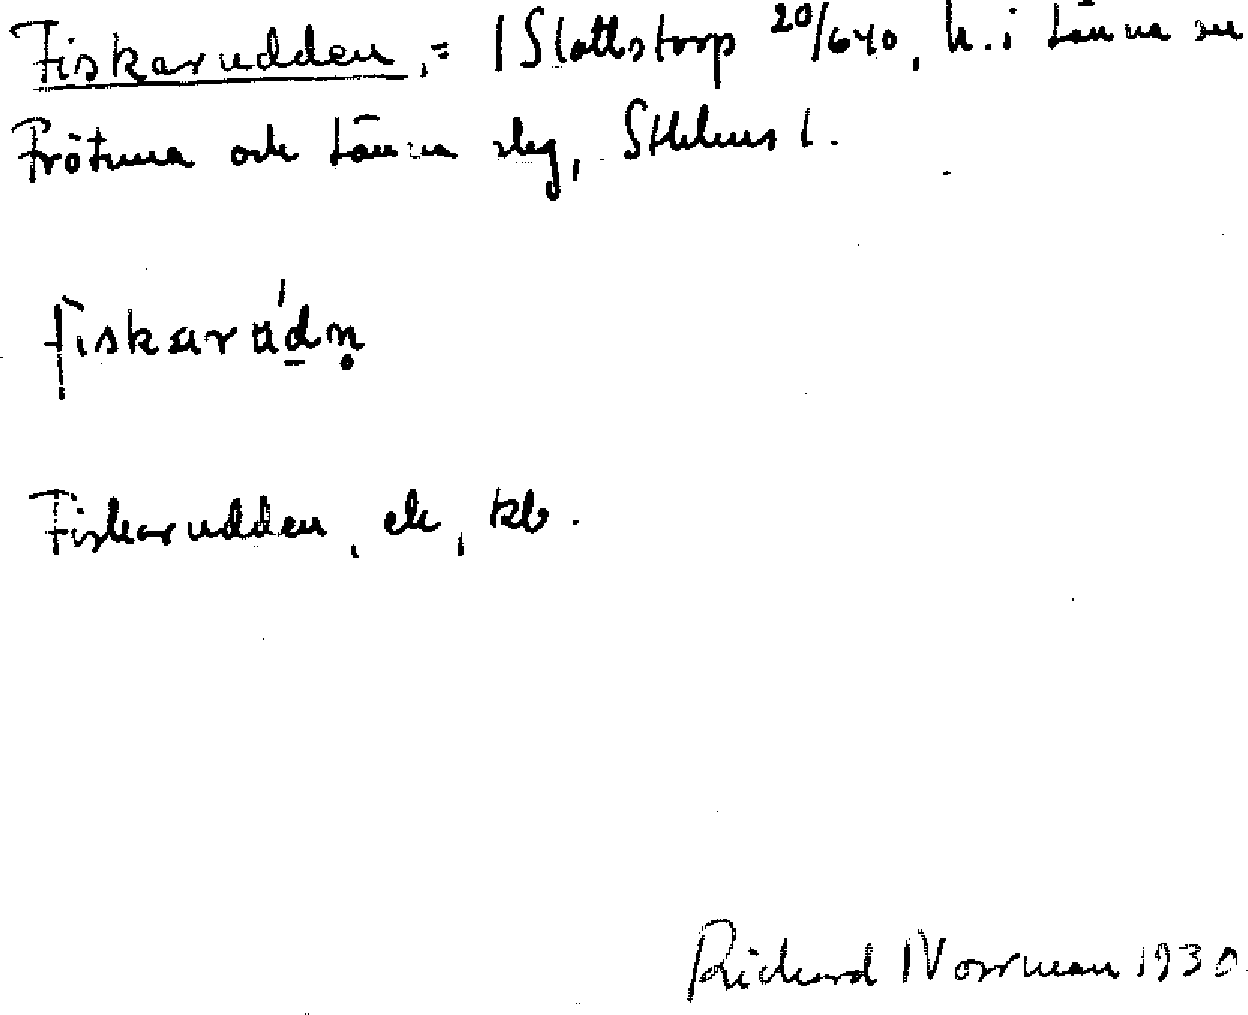 Fiskarudden, = 1 Slottstorp 20/640, h. i Länna sn
Frötuna och Länna slg, Sthlms l.
fiskarúdn̥
Fiskarudden, ek, kb.
Richard Norrman 1930